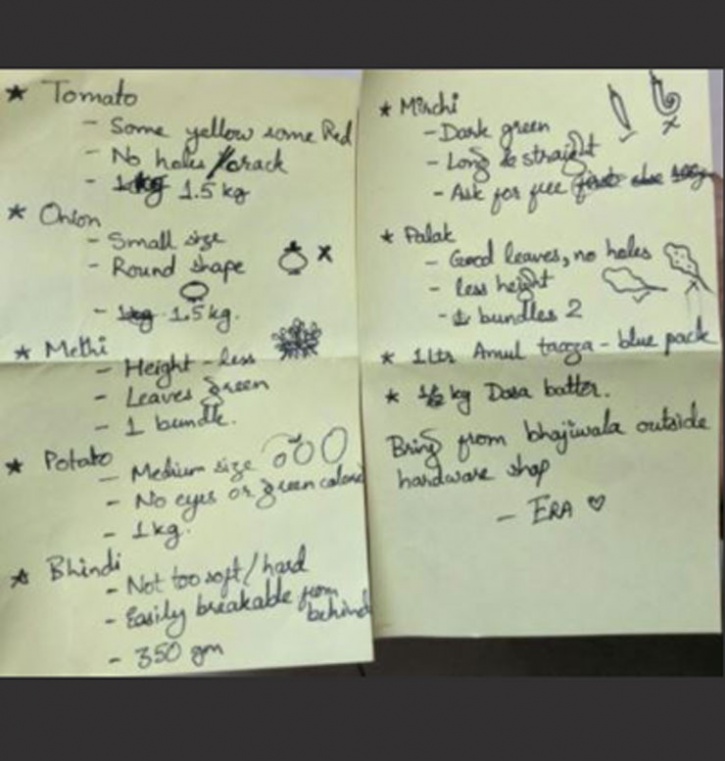 ★ Tomato
- Some yellow some Red
- No holes / crack
- 1.5 kg
★ Onion
- Small size
- Round shape
x
- 1kg 1.5 kg.
★ Methi
- Height - less
- Leaves green
- 1 bundle.
★ Potato
- Medium size
- No eyes or green colored
- 1 kg.
★ Bhindi
- Not too soft / hard
- Easily breakable from behind
- 350 gm
★ Mirchi
- Dark green
- Long & straight
- Ask for free
★ Palak
- Good leaves, no holes
- less height
- bundles 2
★ 1 Ltr Amul taaza - blue pack
★ 1/2 kg Dosa batter.
Bring from bhajiwala outside
hardware shop
- ERA ♡